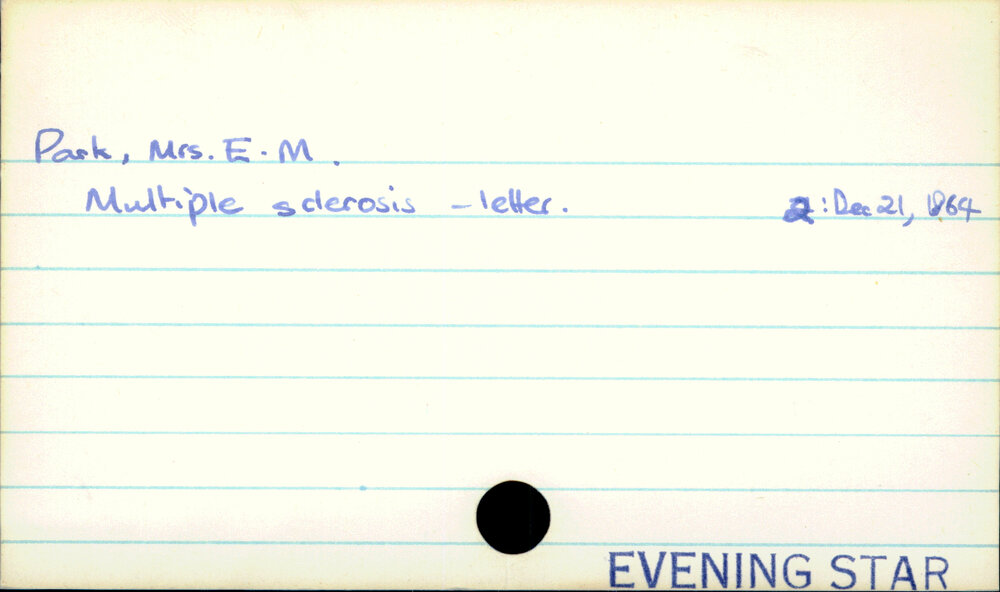 Park, Mrs. E. M.
Multiple sclerosis - letter. 2: Dec 21, 1964
EVENING STAR